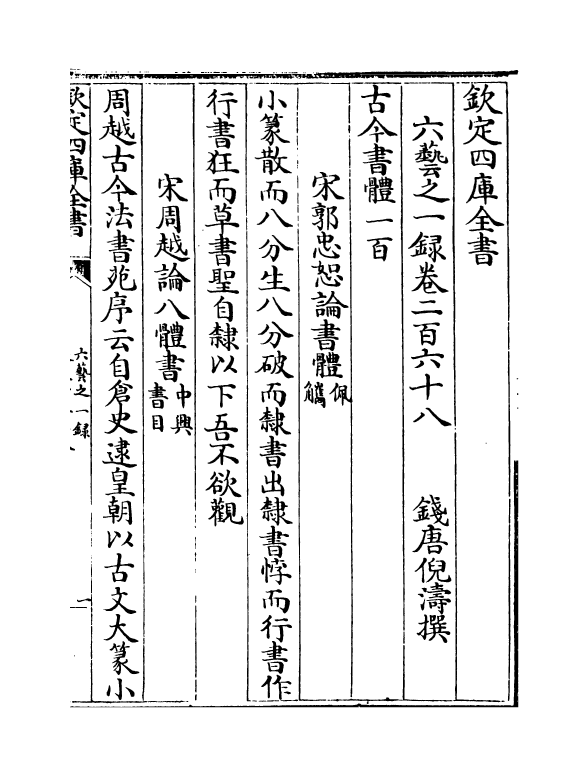 欽定四庫全書
六藝之一録卷二百六十八
錢唐倪濤撰
古今書體一百
宋郭忠恕論書體佩觿
小篆散而八分生八分破而隸書出隸書悖而行書作
行書狂而草書聖自隸以下吾不欲觀
宋周越論八體書中興書目
周越古今法書苑序云自倉史逮皇朝以古文大篆小
欽定四庫全書
六藝之一録
一